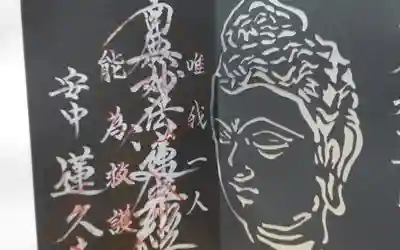 唯我一人
南無妙法蓮華經
能為救護
安中 蓮久